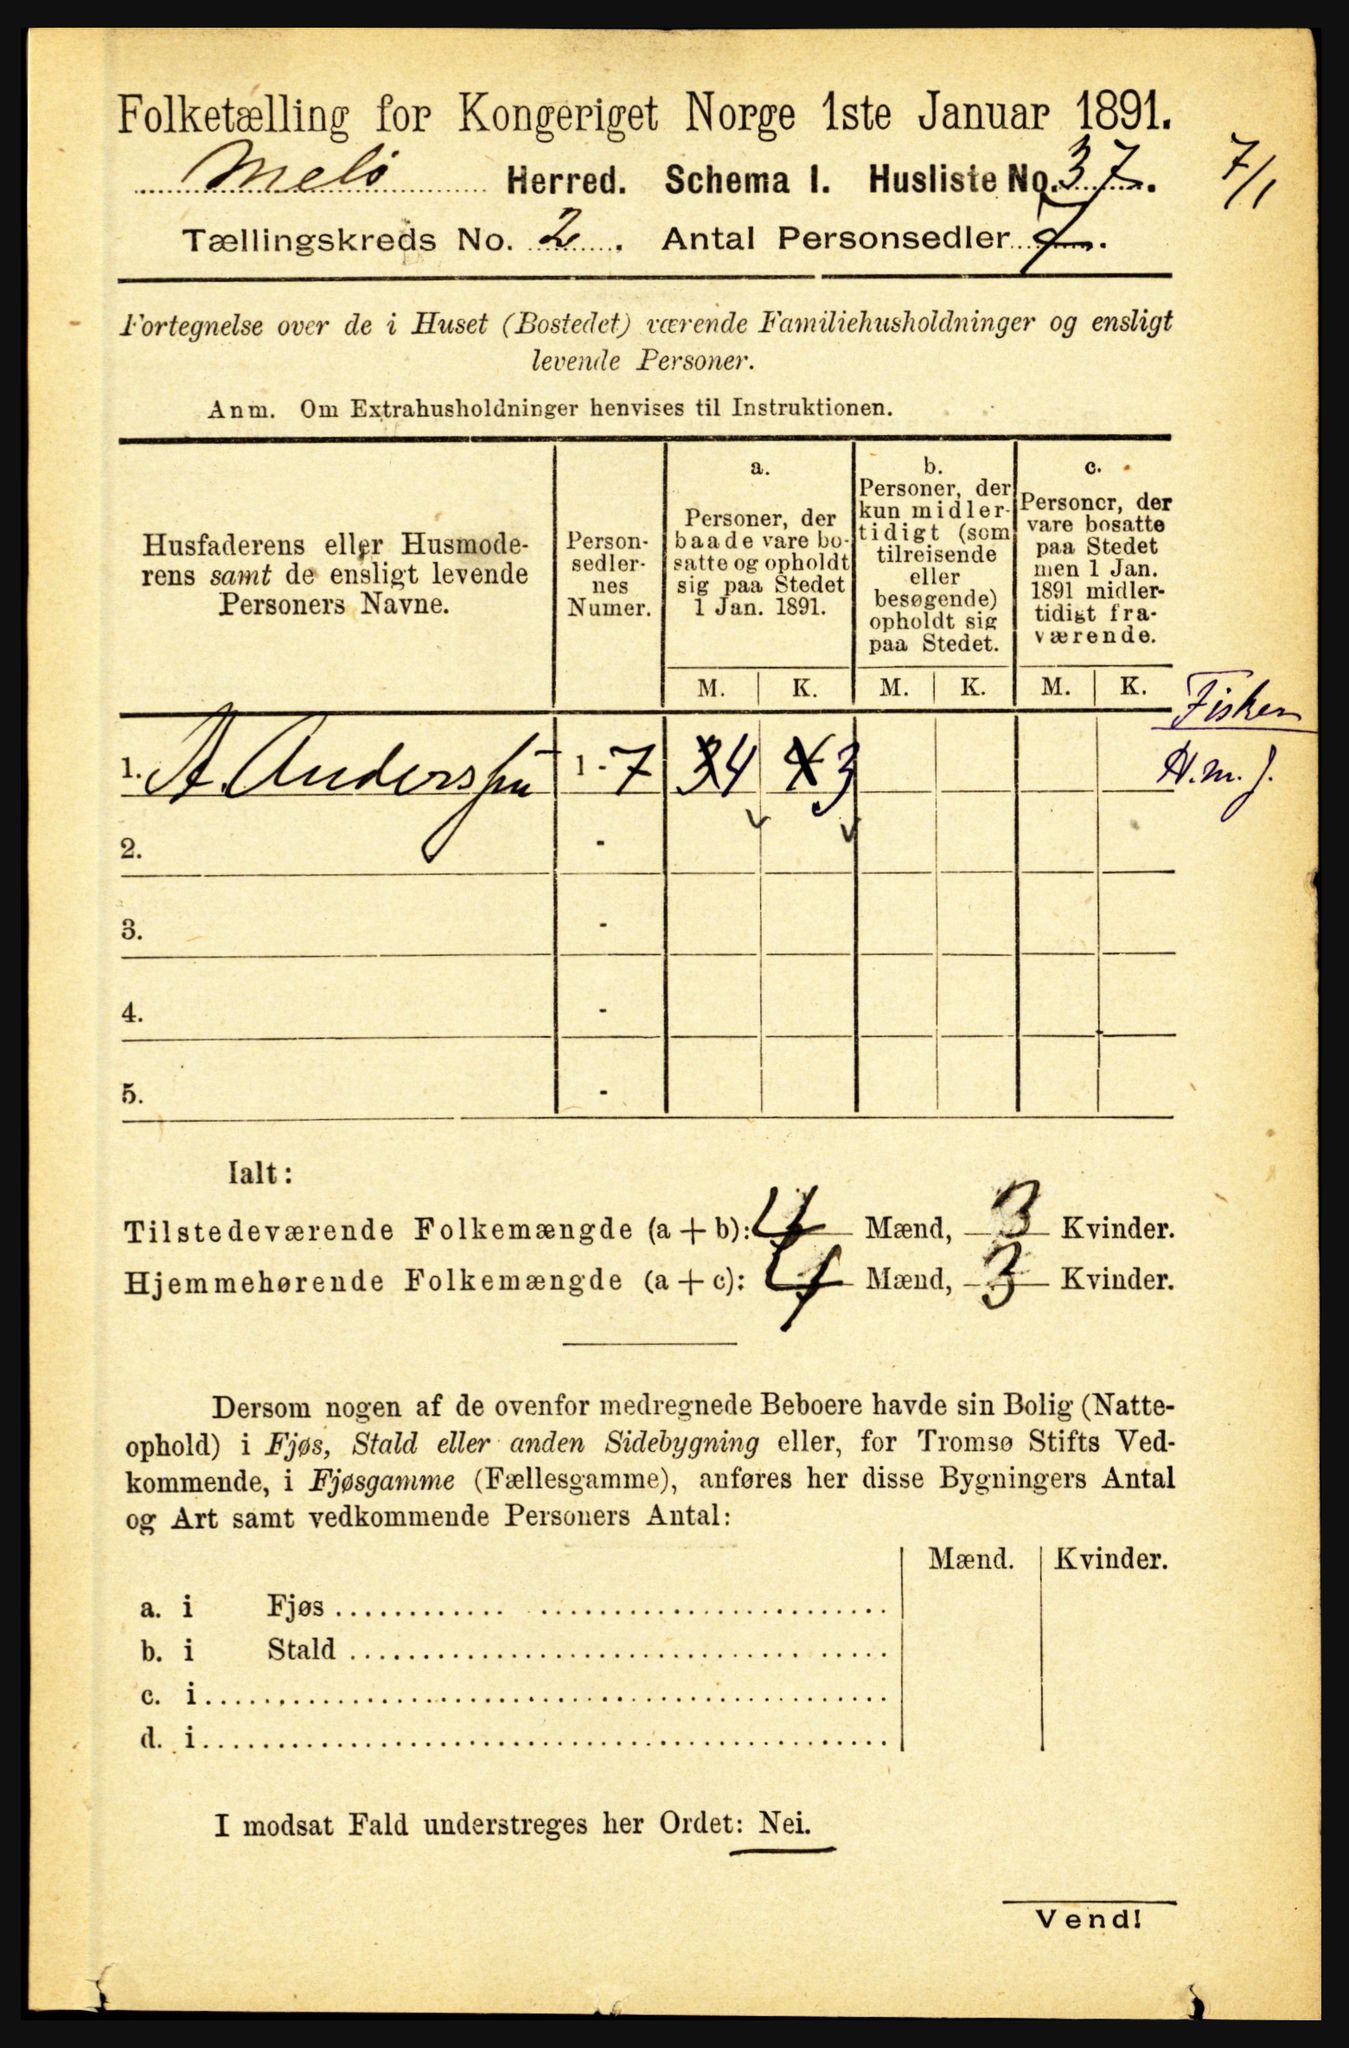 Folketælling for Kongeriget Norge 1ste Januar 1891.
Melö Herred. Schema I. Husliste No. 37.
7/1
Tællingskreds No. 2. Antal Personsedler 7.
Fortegnelse over de i Huset (Bostedet) værende Familiehusholdninger og ensligt
levende Personer.
Anm. Om Extrahusholdninger henvises til Instruktionen.
Husfaderens eller Husmode-
rens samt de ensligt levende
Personers Navne.
Person-
sedler-
nes
Numer.
a.
Personer, der
baade vare bo-
satte og opholdt
sig paa Stedet
1 Jan. 1891.
b.
Personer, der
kun midler-
tidigt (som
tilreisende
eller
besøgende)
opholdt sig
paa Stedet.
c.
Personer, der
vare bosatte
paa Stedet
men 1 Jan.
1891 midler-
tidigt fra-
værende.
M. K. M. K. M. K.
Fisker
1. A. Anderssen 1 - 7 3 4 4 3
H.m.j.
2. -
3. -
4. -
5. -
Ialt:
Tilstedeværende Folkemængde (a + b): 4 Mænd, 3 Kvinder.
Hjemmehørende Folkemængde (a + c): 4 Mænd, 3 Kvinder.
Dersom nogen af de ovenfor medregnede Beboere havde sin Bolig (Natte-
ophold) i Fjøs, Stald eller anden Sidebygning eller, for Tromsø Stifts Ved-
kommende, i Fjøsgamme (Fællesgamme), anføres her disse Bygningers Antal
og Art samt vedkommende Personers Antal:
Mænd. Kvinder.
a. i Fjøs
b. i Stald
c. i
d. i
I modsat Fald understreges her Ordet: Nei.
Vend!